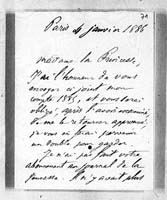 Paris 4 janvier 1886
Madame la Princesse,
J'ai l'honneur de vous
envoyer ci joint mon
compte 1885, et vous serai
obligé, après l'avoir examiné,
de me le retourner approuvé,
je vous en ferai parvenir
un double pour garder
Je n'ai pas fait votre
abonnement au journal de la
jeunesse. Il n'y avait plus